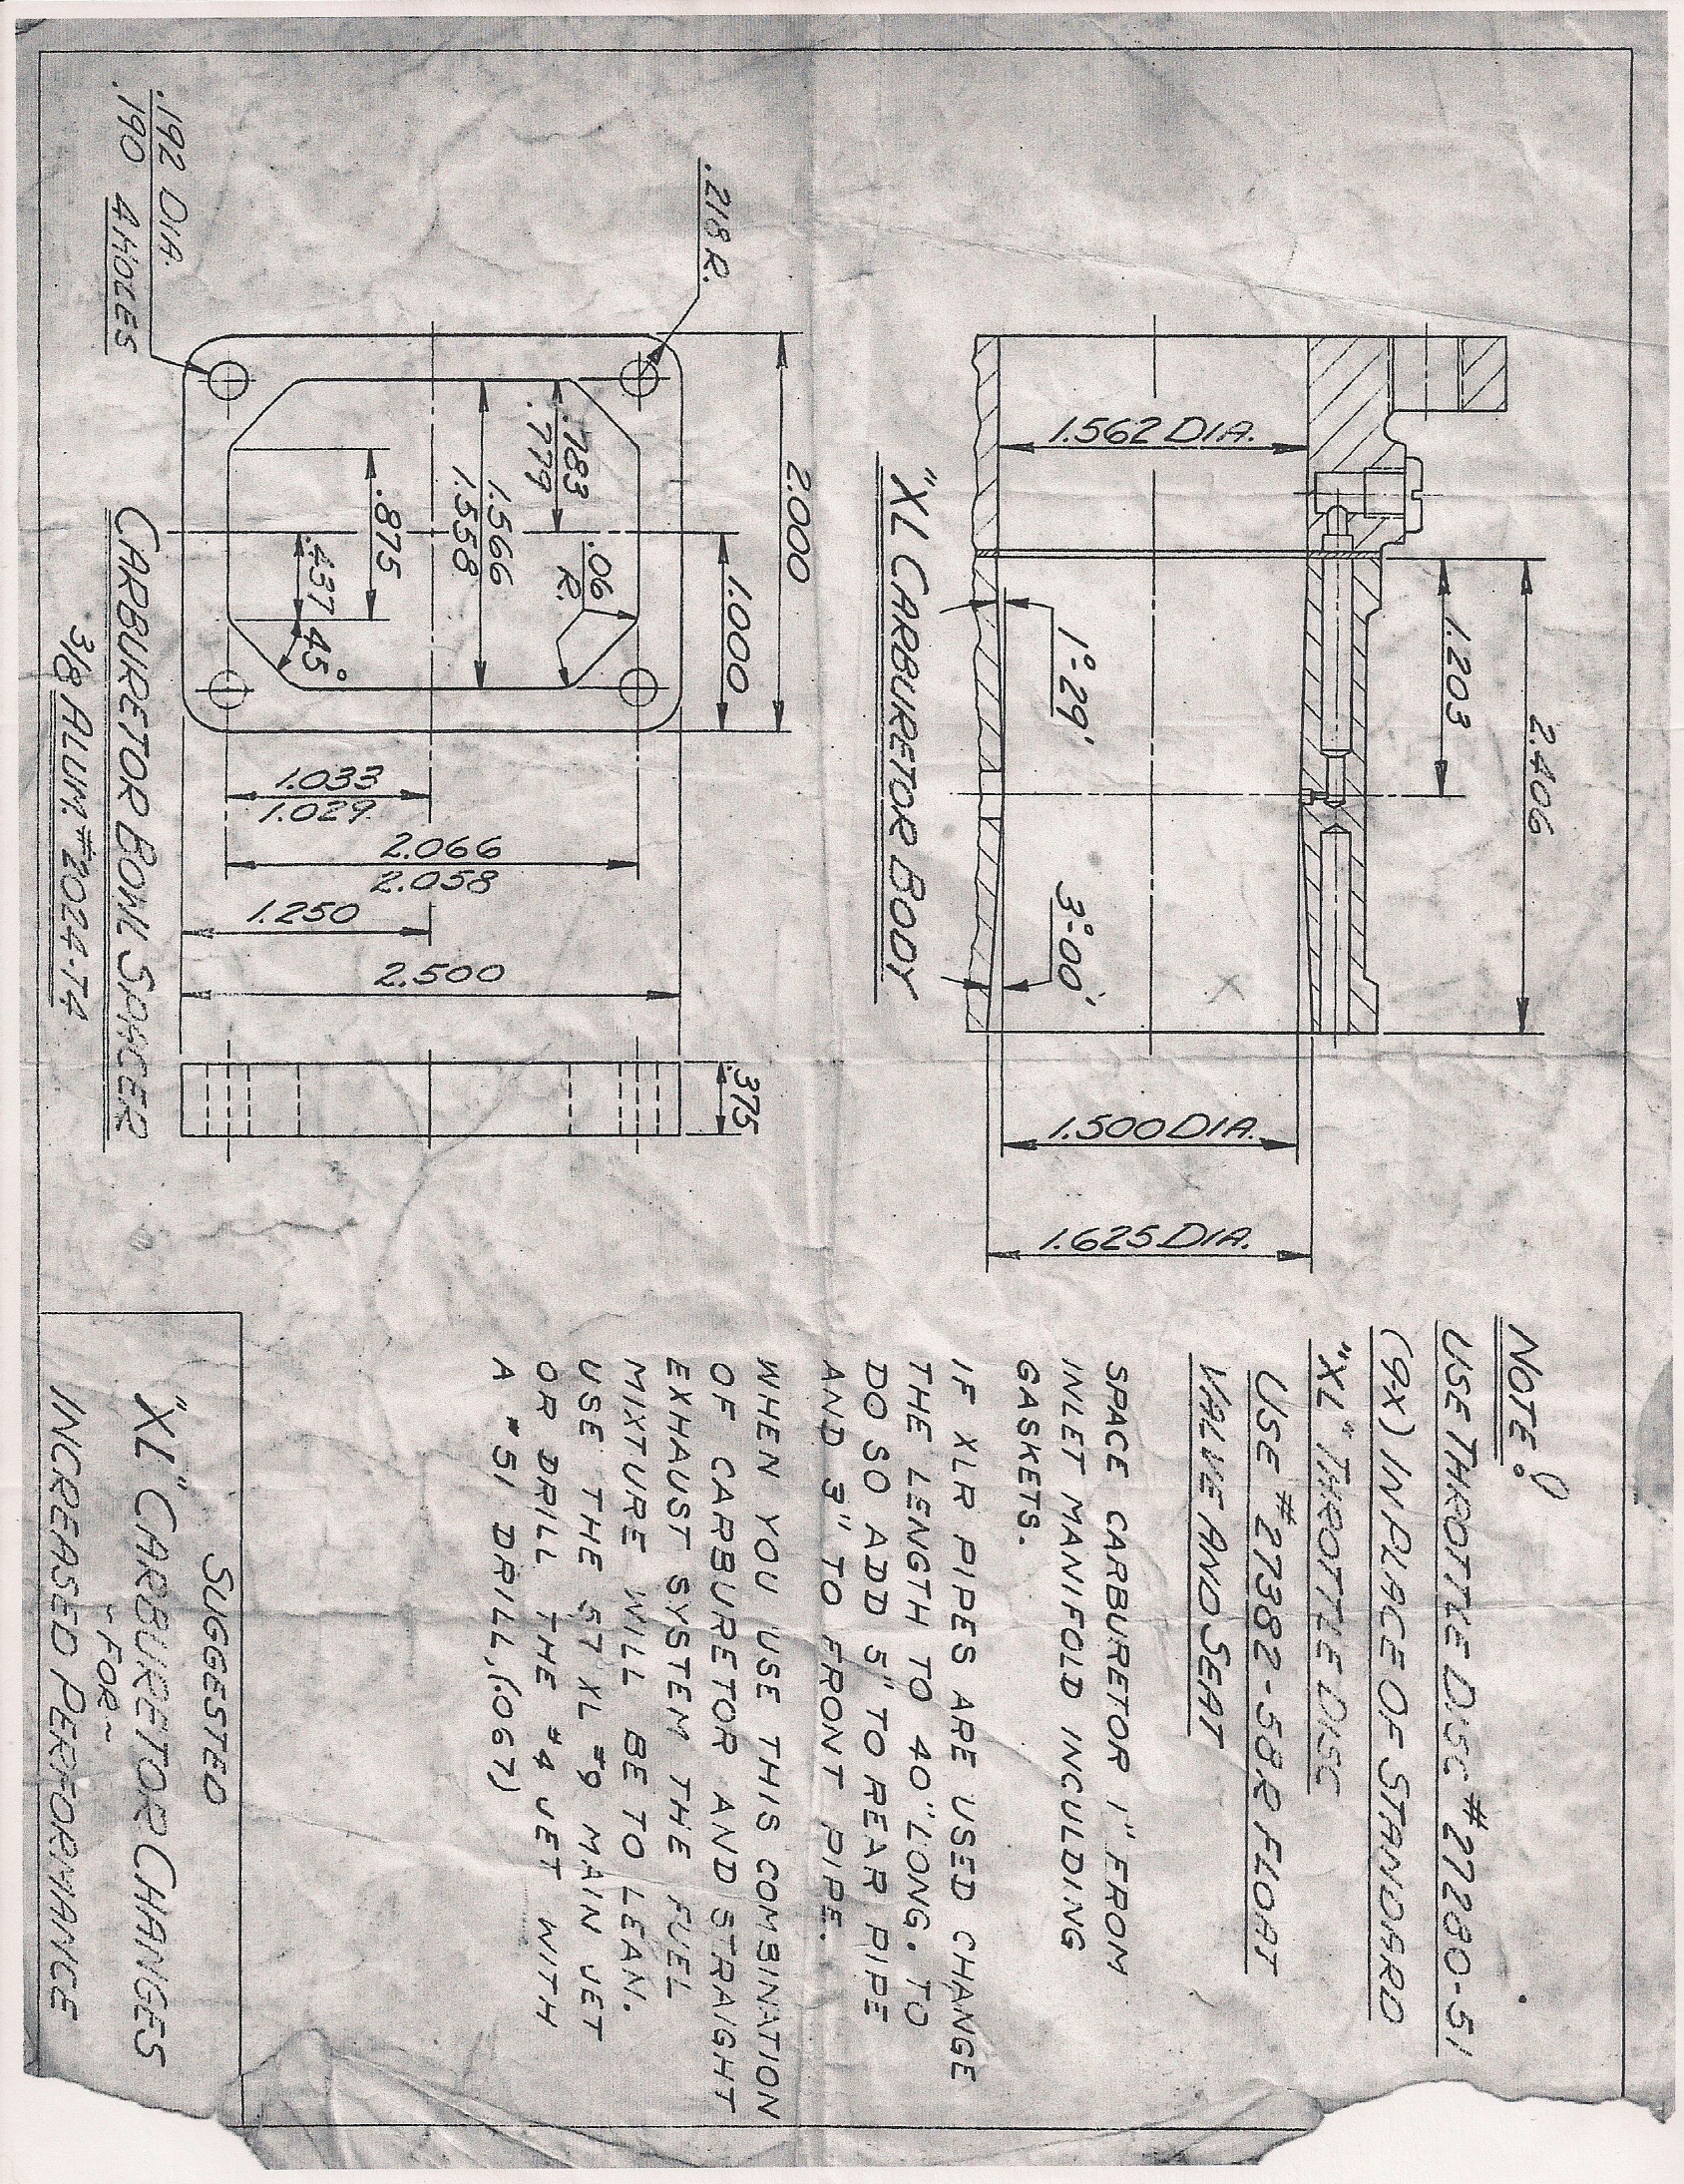 1.562 DIA.
1.203
2.406
1°-29'
3°-00'
1.500 DIA.
1.625 DIA.
"XL CARBURETOR BODY
NOTE!
USE THROTTLE DISC #27280-51
(9X) IN PLACE OF STANDARD
"XL" THROTTLE DISC
USE #27382-58R FLOAT
VALVE AND SEAT
SPACE CARBURETOR 1" FROM
INLET MANIFOLD INCULDING
GASKETS.
IF XLR PIPES ARE USED CHANGE
THE LENGTH TO 40" LONG. TO
DO SO ADD 5" TO REAR PIPE
AND 3" TO FRONT PIPE.
WHEN YOU USE THIS COMBINATION
OF CARBURETOR AND STRAIGHT
EXHAUST SYSTEM THE FUEL
MIXTURE WILL BE TO LEAN.
USE THE 57 XL #9 MAIN JET
OR DRILL THE #4 JET WITH
A #51 DRILL,(.067)
.218 R.
2.000
1.000
.783
.779
.06
R.
1.566
1.558
.875
.437
45°
.192 DIA.
.190 4 HOLES
1.033
1.029
2.066
2.058
1.250
2.500
.375
CARBURETOR BOWL SPACER
3/8 ALUM. #2024-T4
SUGGESTED
"XL" CARBURETOR CHANGES
~FOR~
INCREASED PERFORMANCE